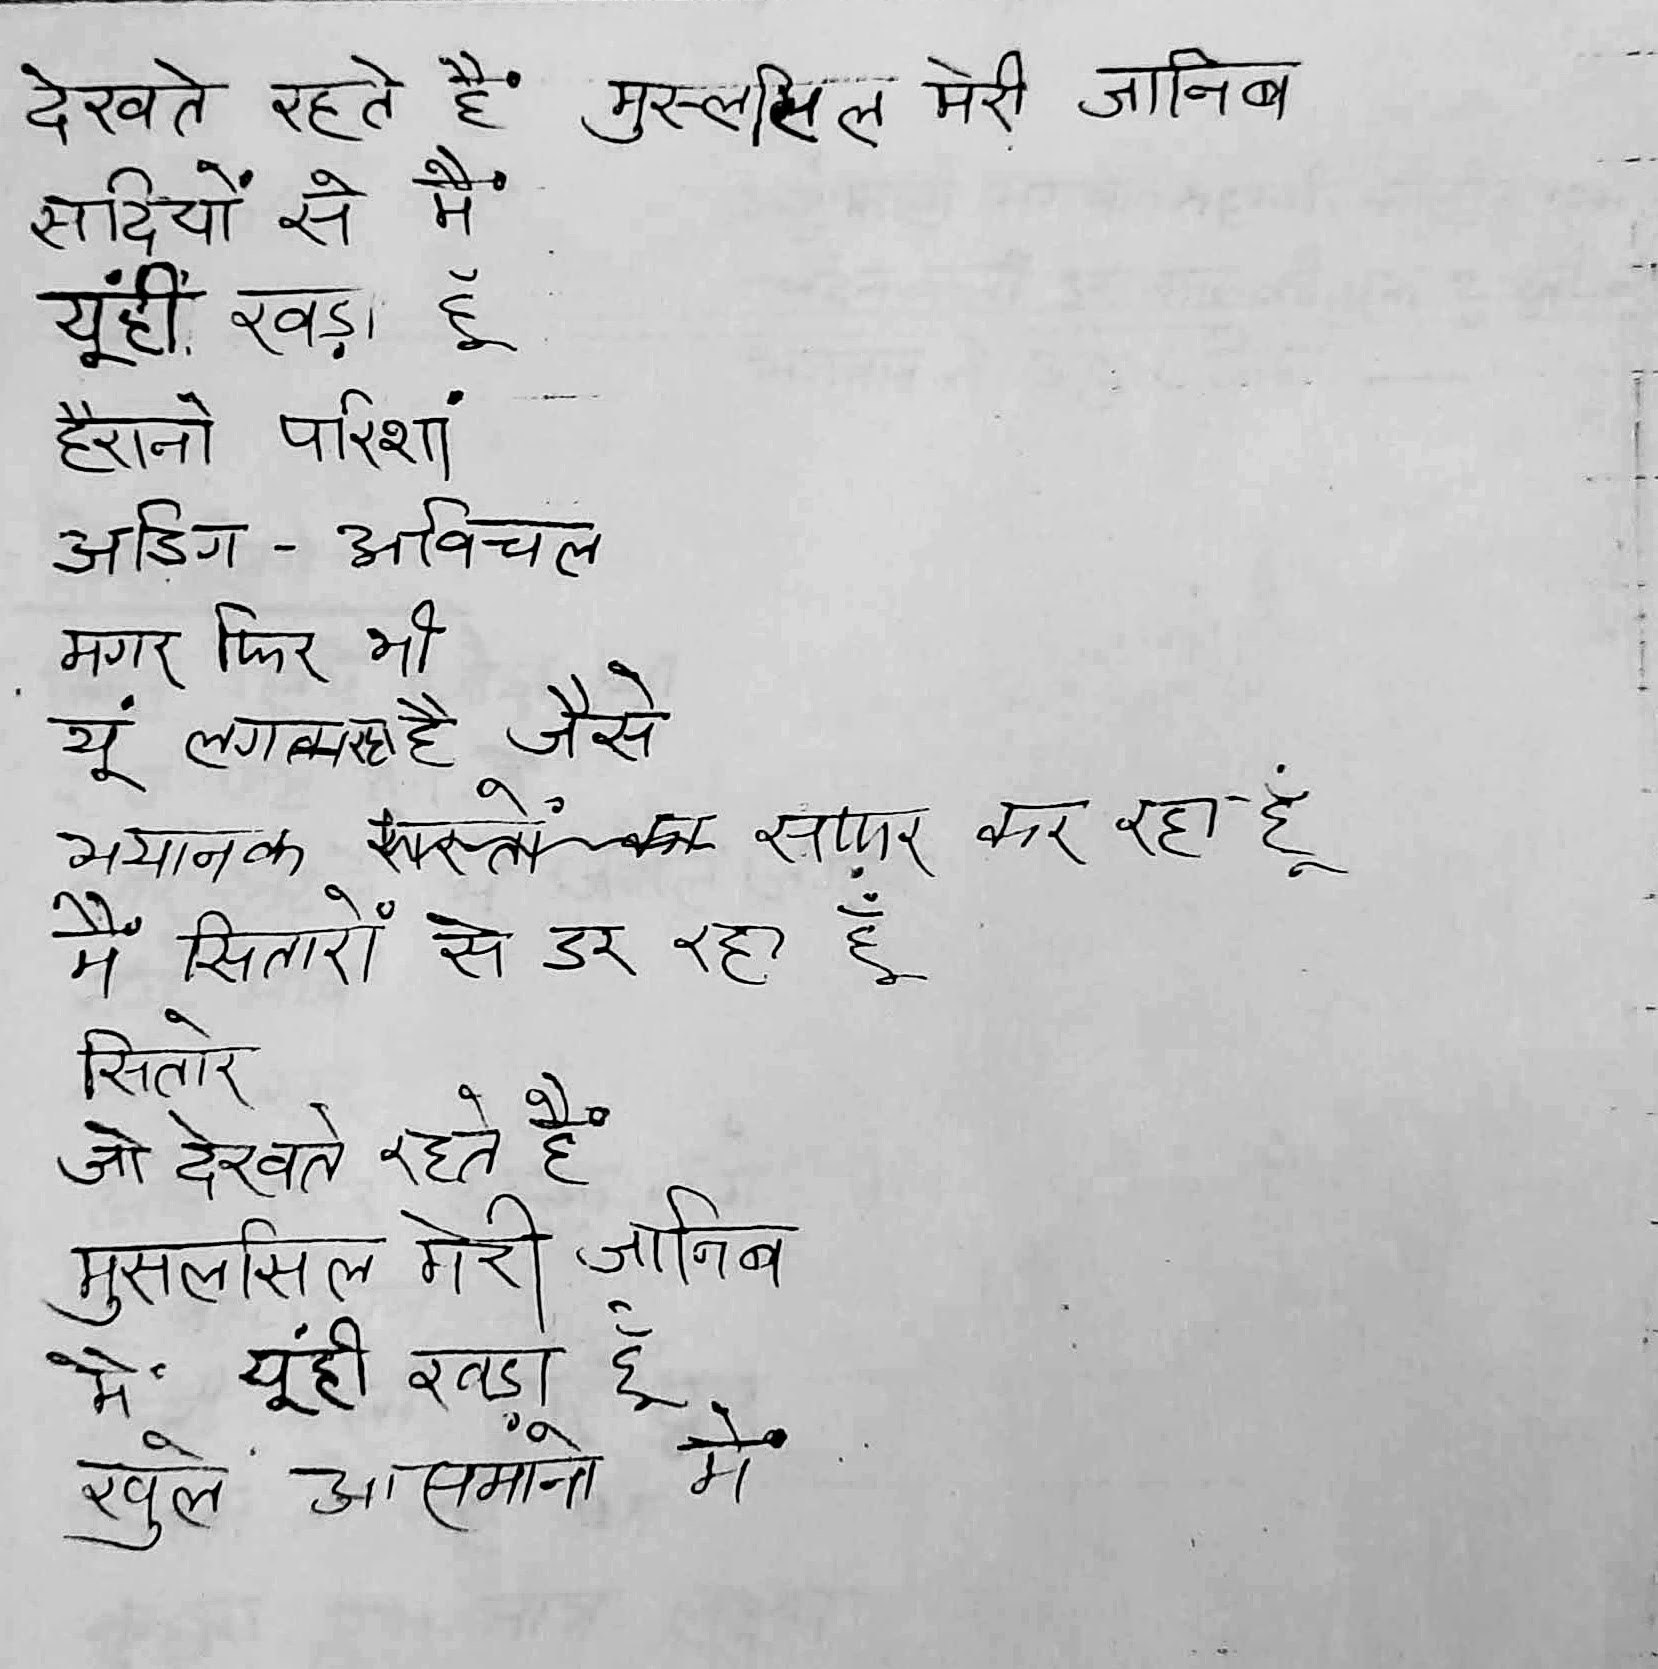 देखते रहते हैं मुस्लसिल मेरी जानिब
सदियों से मैं
यूंहीं खड़ा हूँ
हैरानो परिशां
अडिग - अविचल
मगर फिर भी
यूं लगता रहा है जैसे
भयानक रास्तों का सफ़र कर रहा हूं
मैं सितारों से डर रहा हूँ
सितारे
जो देखते रहते हैं
मुसलसिल मेरी जानिब
में यूंही खड़ा हूँ
खुले आसमांनों में